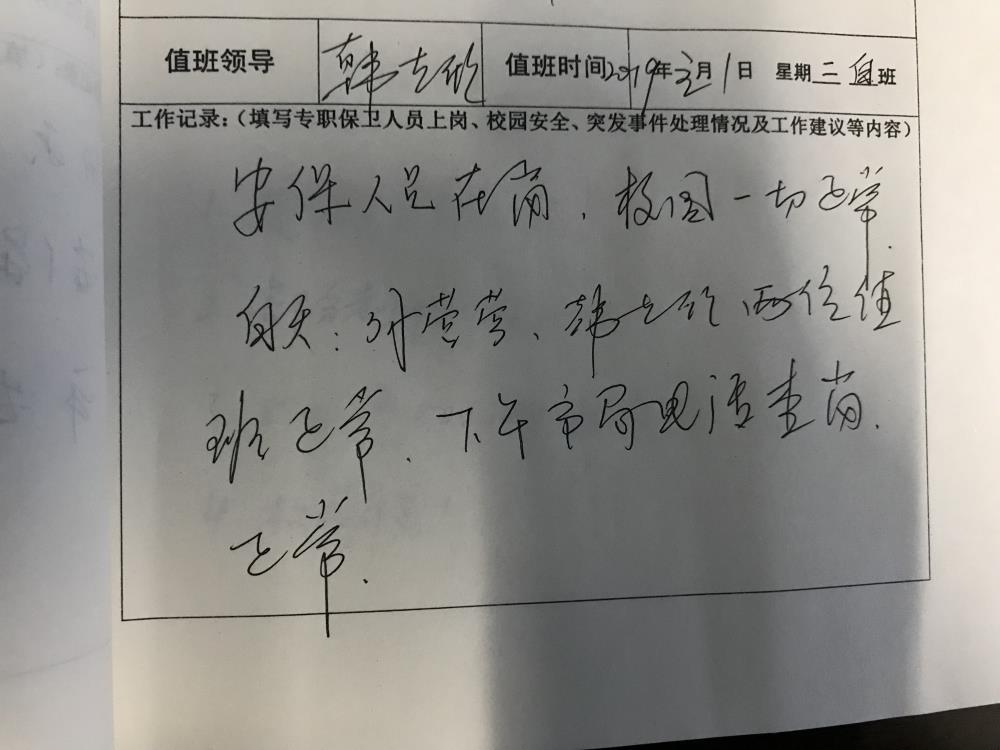 值班领导 韩 值班时间 2019年五月1日 星期三 白班
工作记录：（填写专职保卫人员上岗、校园安全、突发事件处理情况及工作建议等内容）
安保人员在岗，校园一切正常.
白天：孙、韩 两位值
班正常. 下午市局电话查岗.
正常.